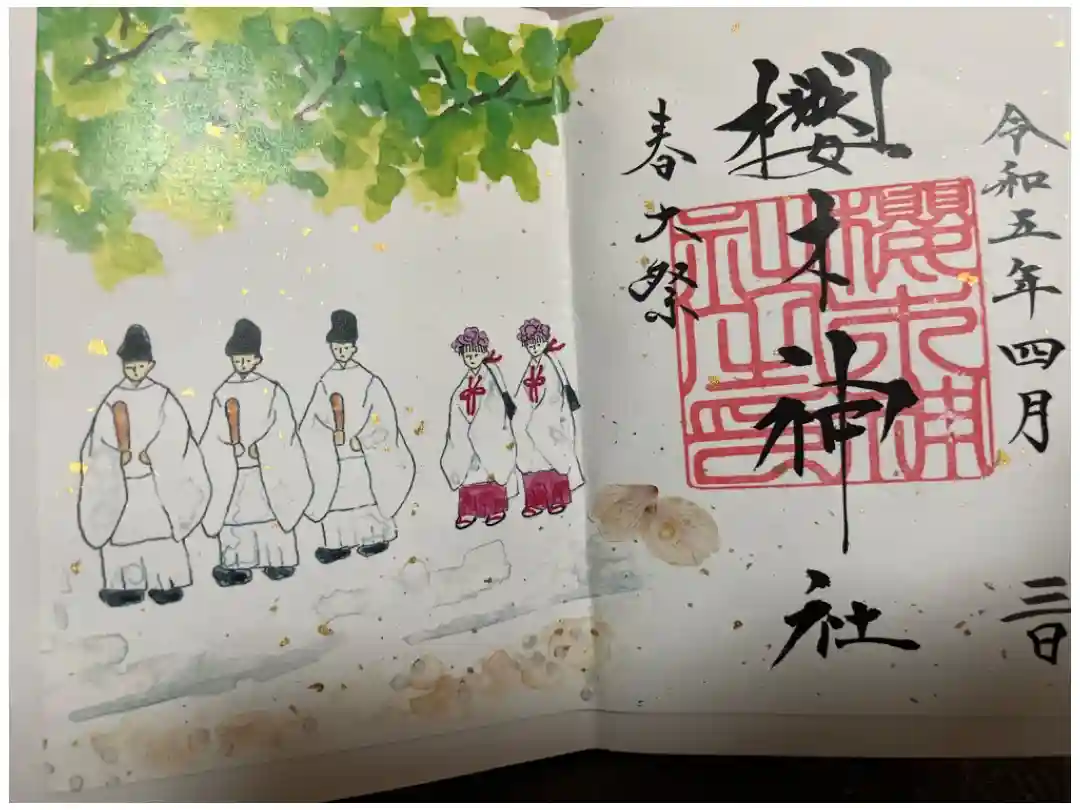 令和五年四月三日
櫻木神社
櫻木神
社之印
春大祭